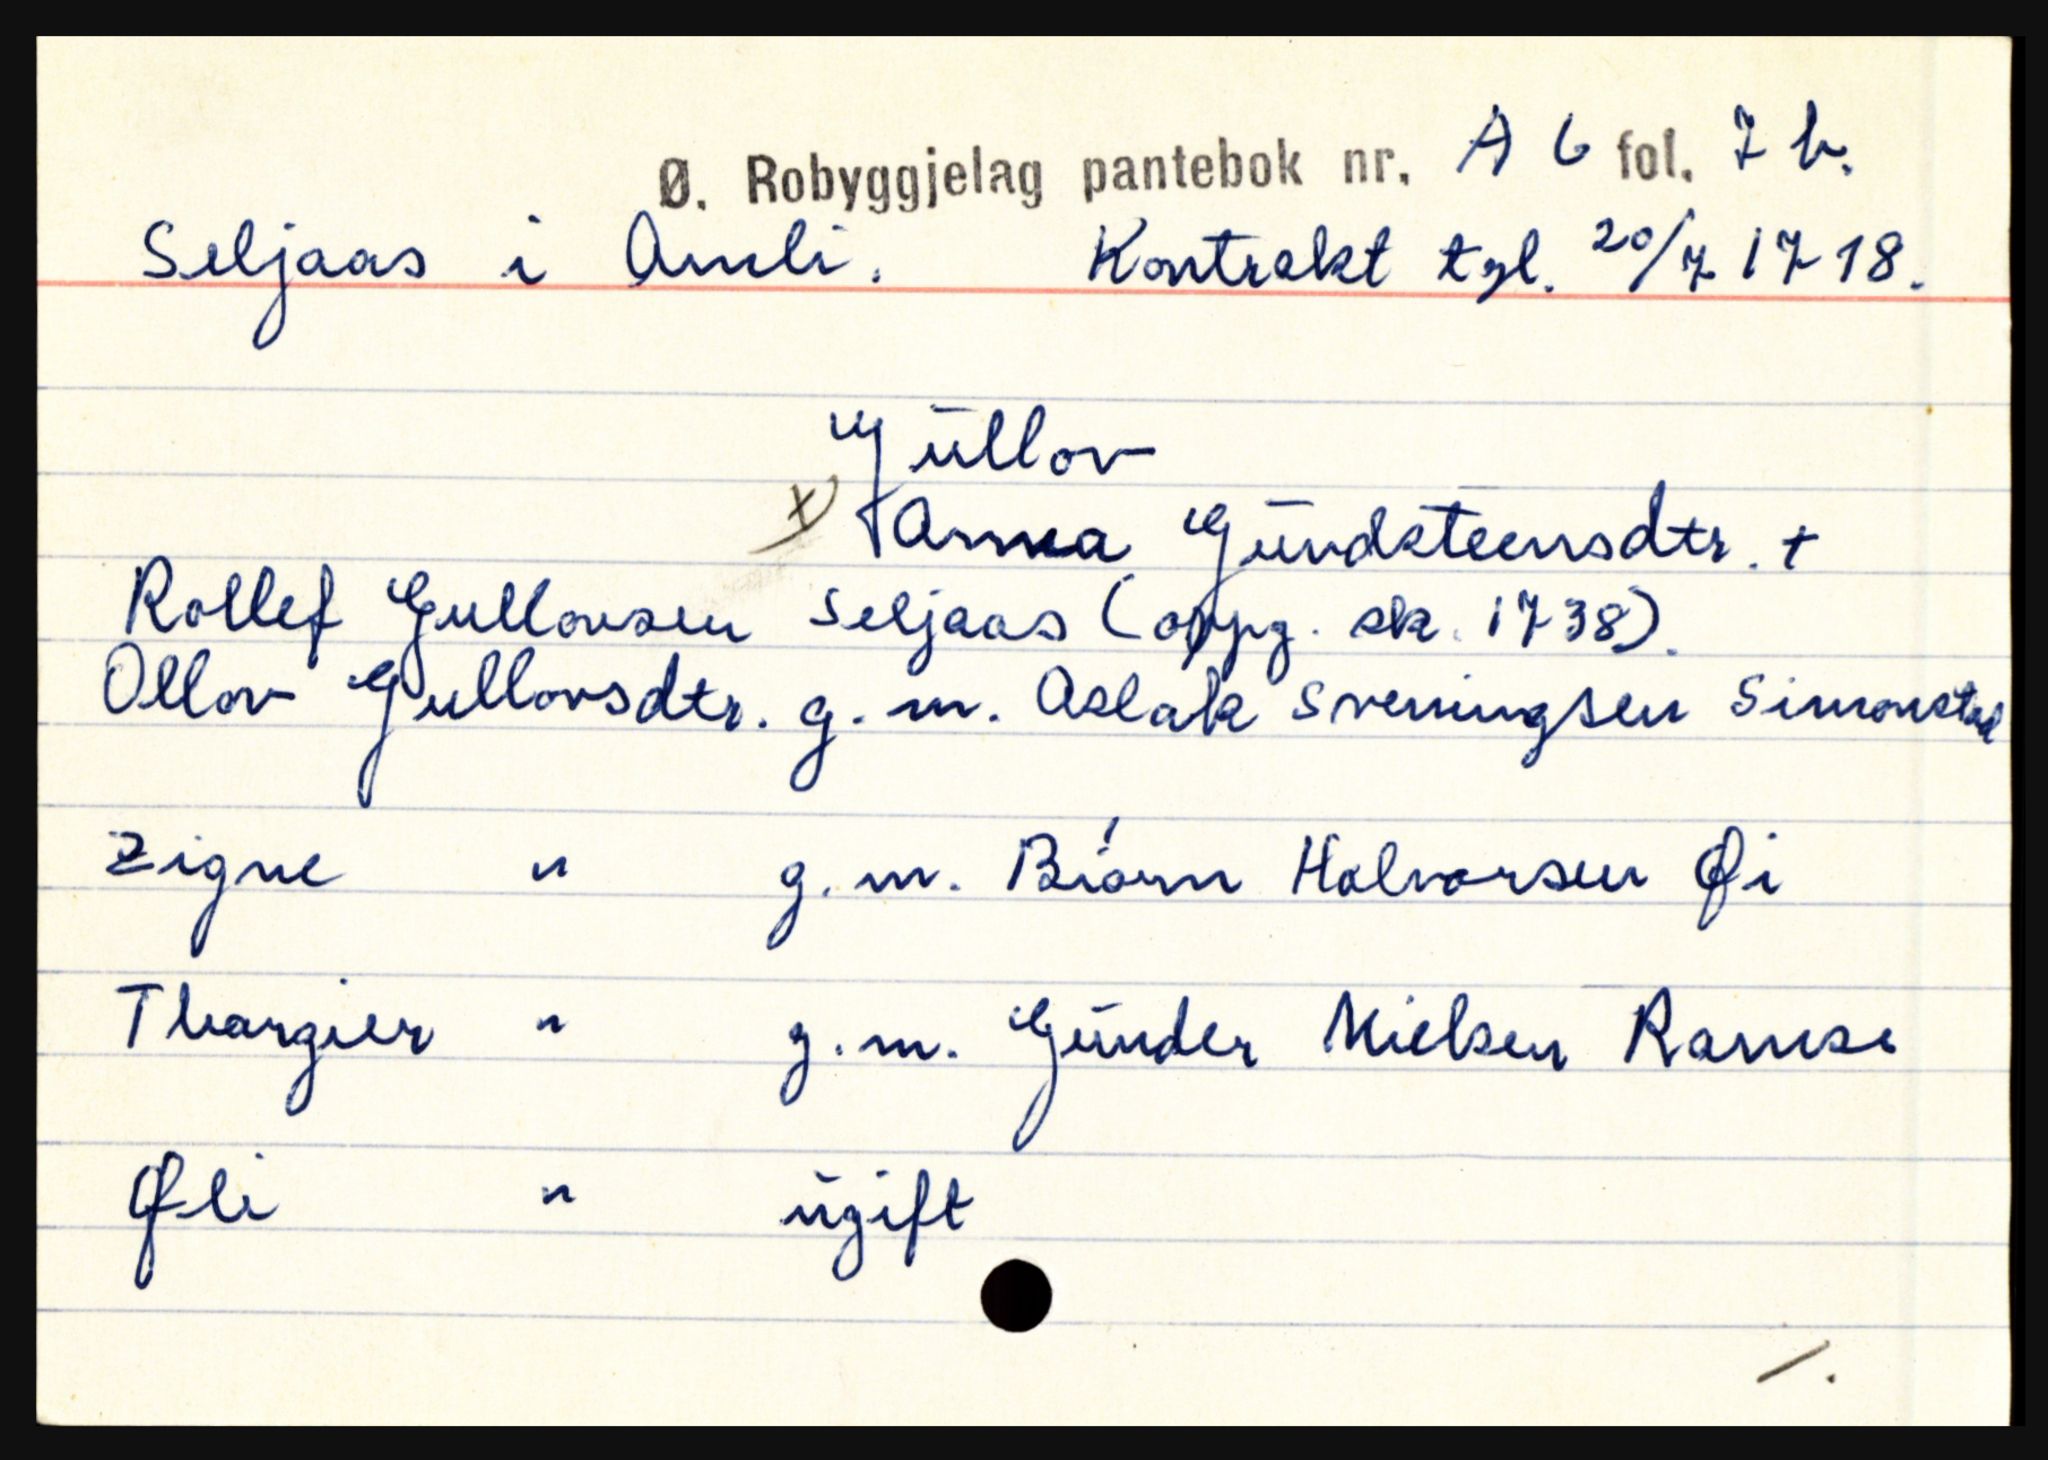 Ø. Robyggjelag pantebok nr. A 6 fol. 7 b.
Seljaas i Amli. Kontrakt tgl. 20/7 1718.
Gūllov
x) Anna Gūndsteensdtr. +
Rollef Gullovsen Seljaas (oppg. sk. 1738).
Ollov Gullovsdtr. g. m. Aslak Sveningsen Simonstad
Zigne " g. m. Biørn Halvorsen Øi
Thorgier " g. m. Gūnder Nielsen Ramse
Øli " ūgift
/.